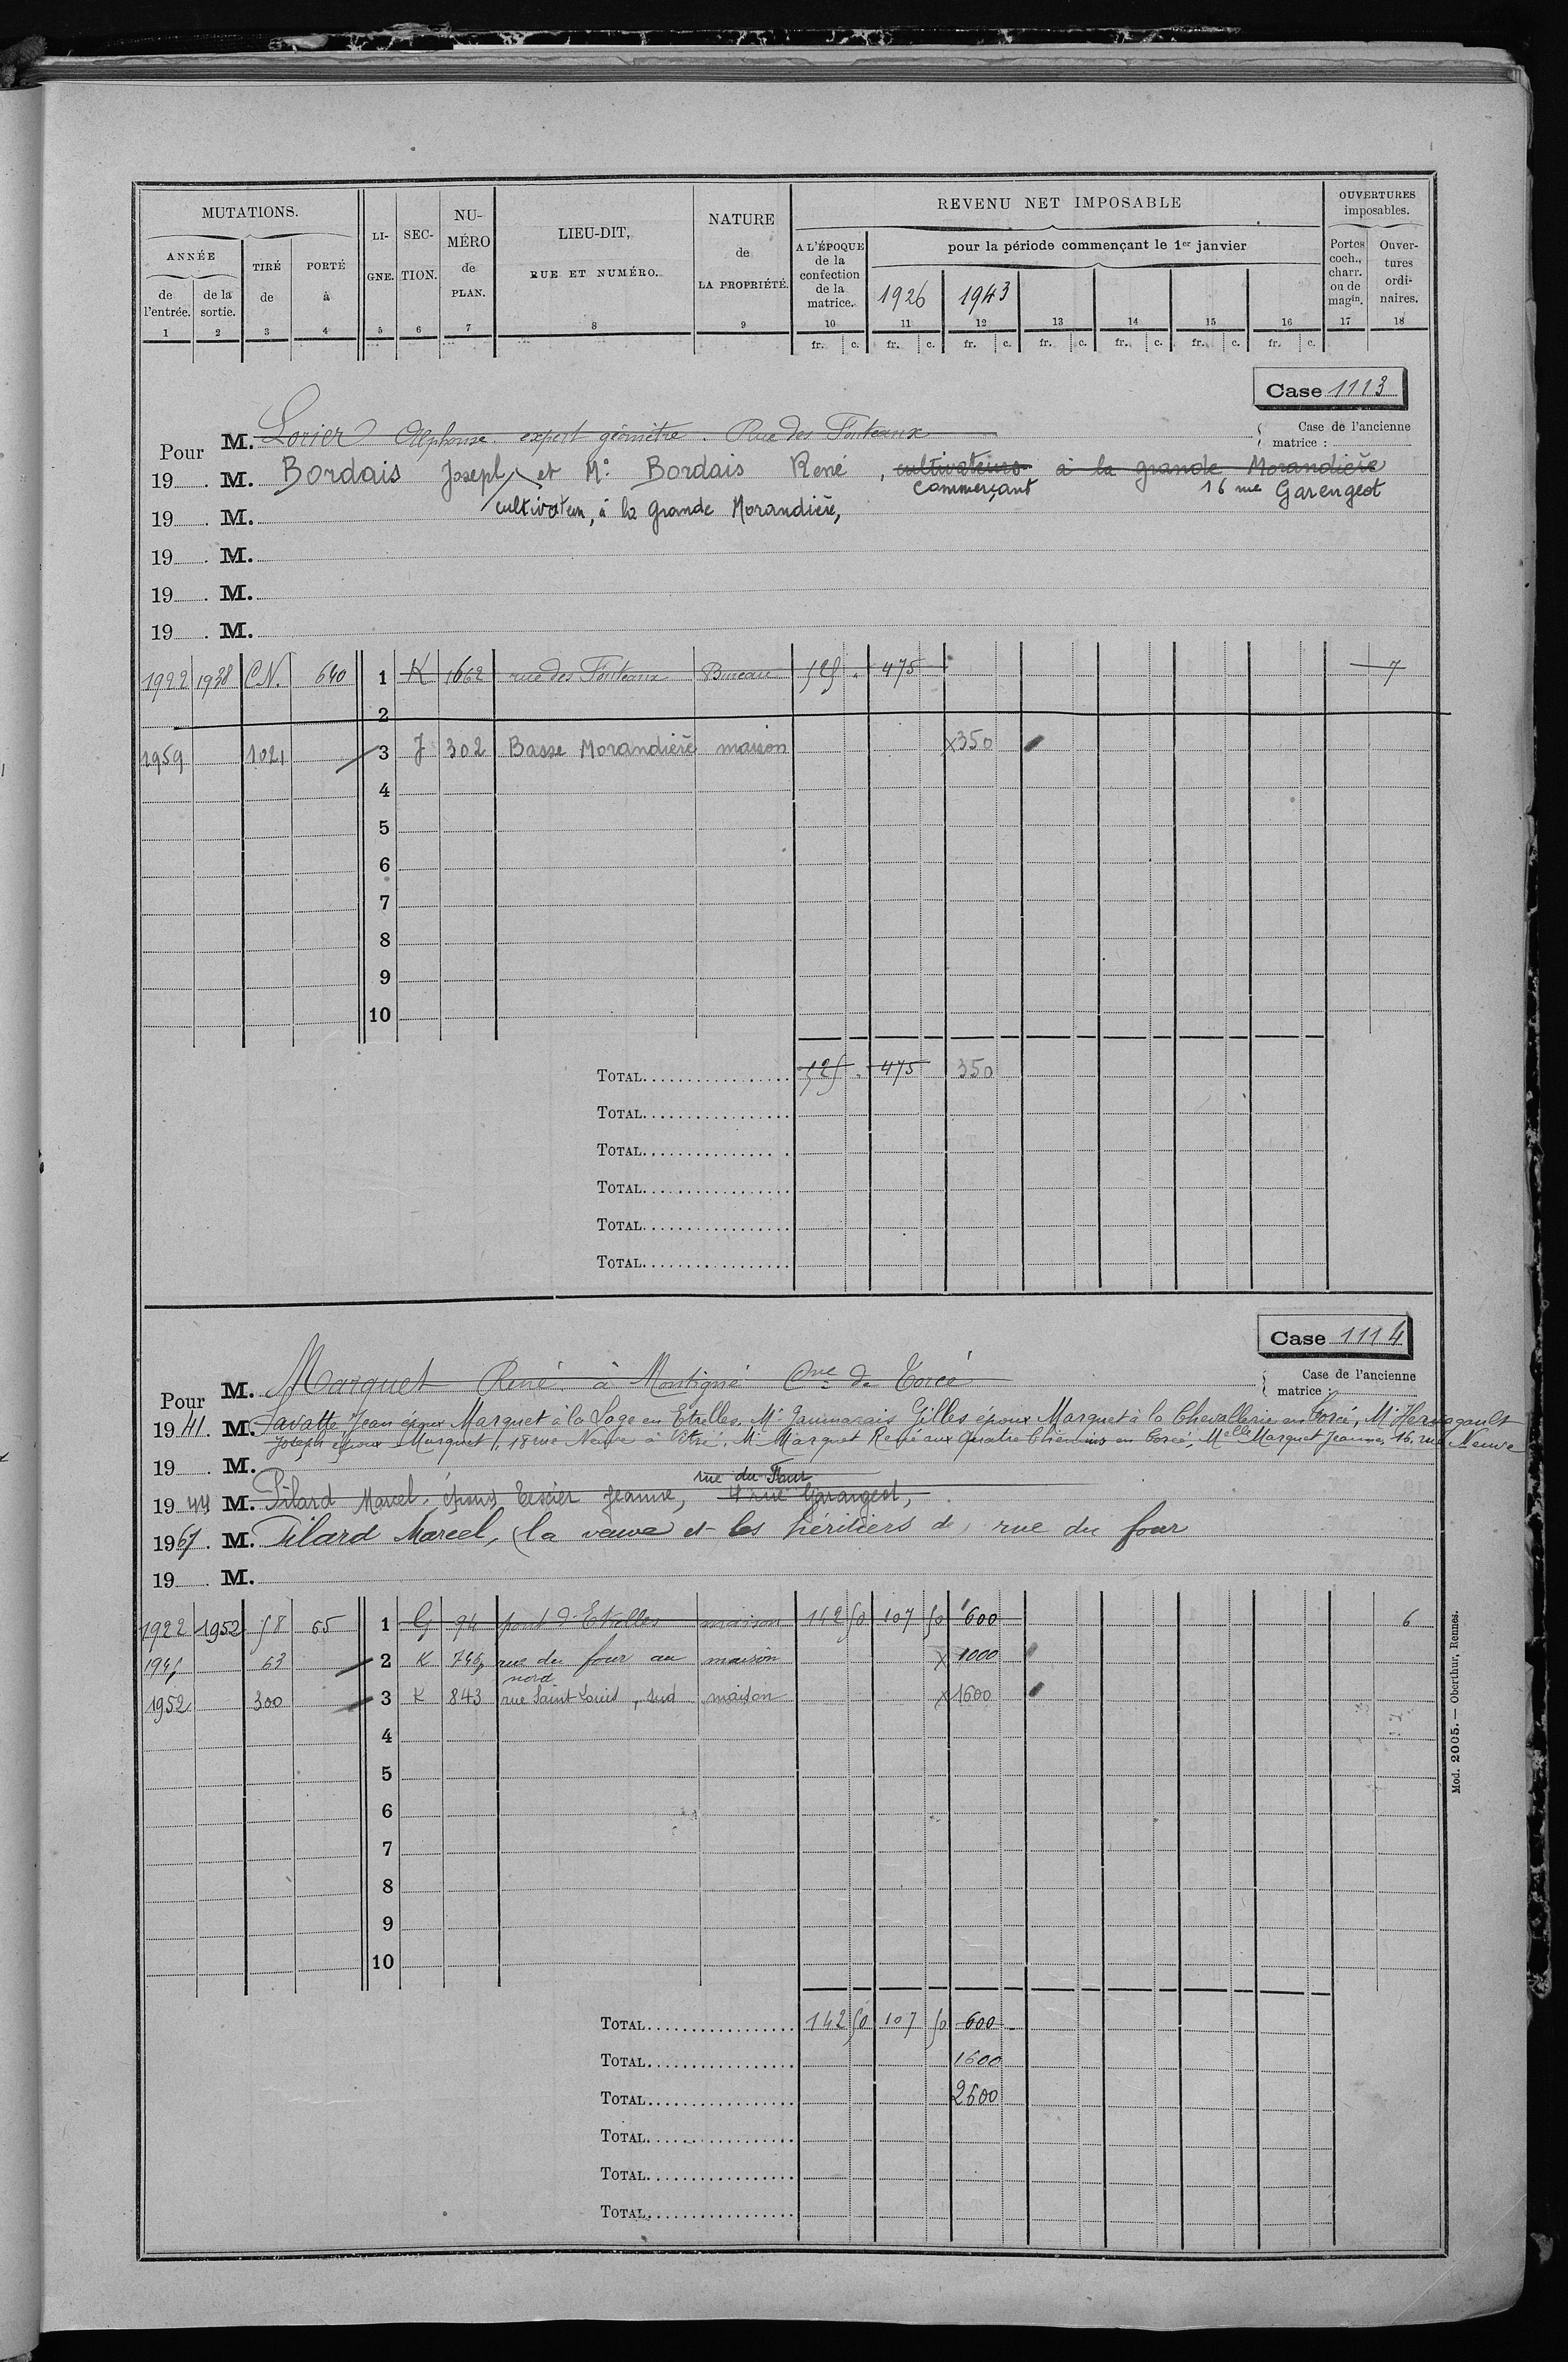 MUTATIONS. LI- SEC- NU- LIEU-DIT, NATURE REVENU NET IMPOSABLE OUVERTURES
imposables.
ANNÉE TIRÉ PORTÉ GNE. TION. MÉRO RUE ET NUMÉRO. de A L'ÉPOQUE pour la période commençant le 1er janvier Portes Ouver-
de de la de à de LA PROPRIÉTÉ. de la coch., tures
l'entrée. sortie. PLAN. confection charr. ordi-
de la ou de naires.
matrice. 1926 1943 magin.
1 2 3 4 5 6 7 8 9 10 11 12 13 14 15 16 17 18
fr. c. fr. c. fr. c. fr. c. fr. c. fr. c. fr. c.
Case 1113
Case de l'ancienne
matrice :
Pour M. Lorier Alphonse expert géomètre. Rue des Fonteaux
19 . M. Bordais Joseph et Mr Bordais René, cultivateurs à la grande Morandière
commerçant 16 rue Garengeot
19 . M. cultivateur, à la Grande Morandière,
19 . M.
19 . M.
19 . M.
1922 1938 CN. 640 1 K 1662 rue des Fonteaux Bureau 525 . 475 7
2
1959 1021 3 J 302 Basse Morandière maison x350
4
5
6
7
8
9
10
TOTAL 525 . 475 350
TOTAL
TOTAL
TOTAL
TOTAL
TOTAL
Case 1114
Case de l'ancienne
matrice :
Pour M. Marquet René à Montigné Cne de Torcé
1941. M. Savatte Jean époux Marquet à la Sage en Etrelles, Mr Gilles époux Marquet à la Chevallerie en Torcé, Mr Hermagault
Joseph époux Marquet, 18 rue Neuve à Vitré, Mr Marquet René aux Quatre Chemins en Torcé, Melle Marquet Jeanne, 16, rue Neuve
19 . M.
rue du Four
1944 M. Pilard Marcel, époux Tessier Jeanne, 4 rue Garangeot,
1967. M. Pilard Marcel, (la veuve et les héritiers de, rue du four
19 . M.
1922 1952 58 65 1 G 94 pont d'Etrelles maison 142 50 107 50 600 6
1945 63 2 K 746p rue du four au maison x 1000
nord
1952 300 3 K 843 rue Saint Louis, sud maison x1600
4
5
6
7
8
9
10
TOTAL 142 50 107 50 600
TOTAL 1600
TOTAL 2600
TOTAL
TOTAL
TOTAL
Mod. 2005. — Oberthur, Rennes.